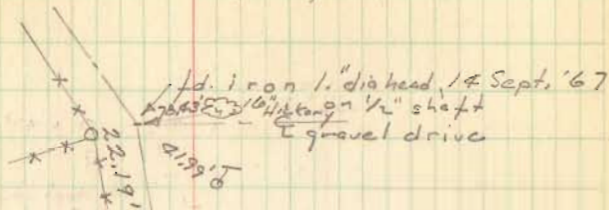 fd. iron 1." dia head, 14 Sept. '67
16" Hickory on 1/2" shaft
gravel drive
22.19'
41.99' To